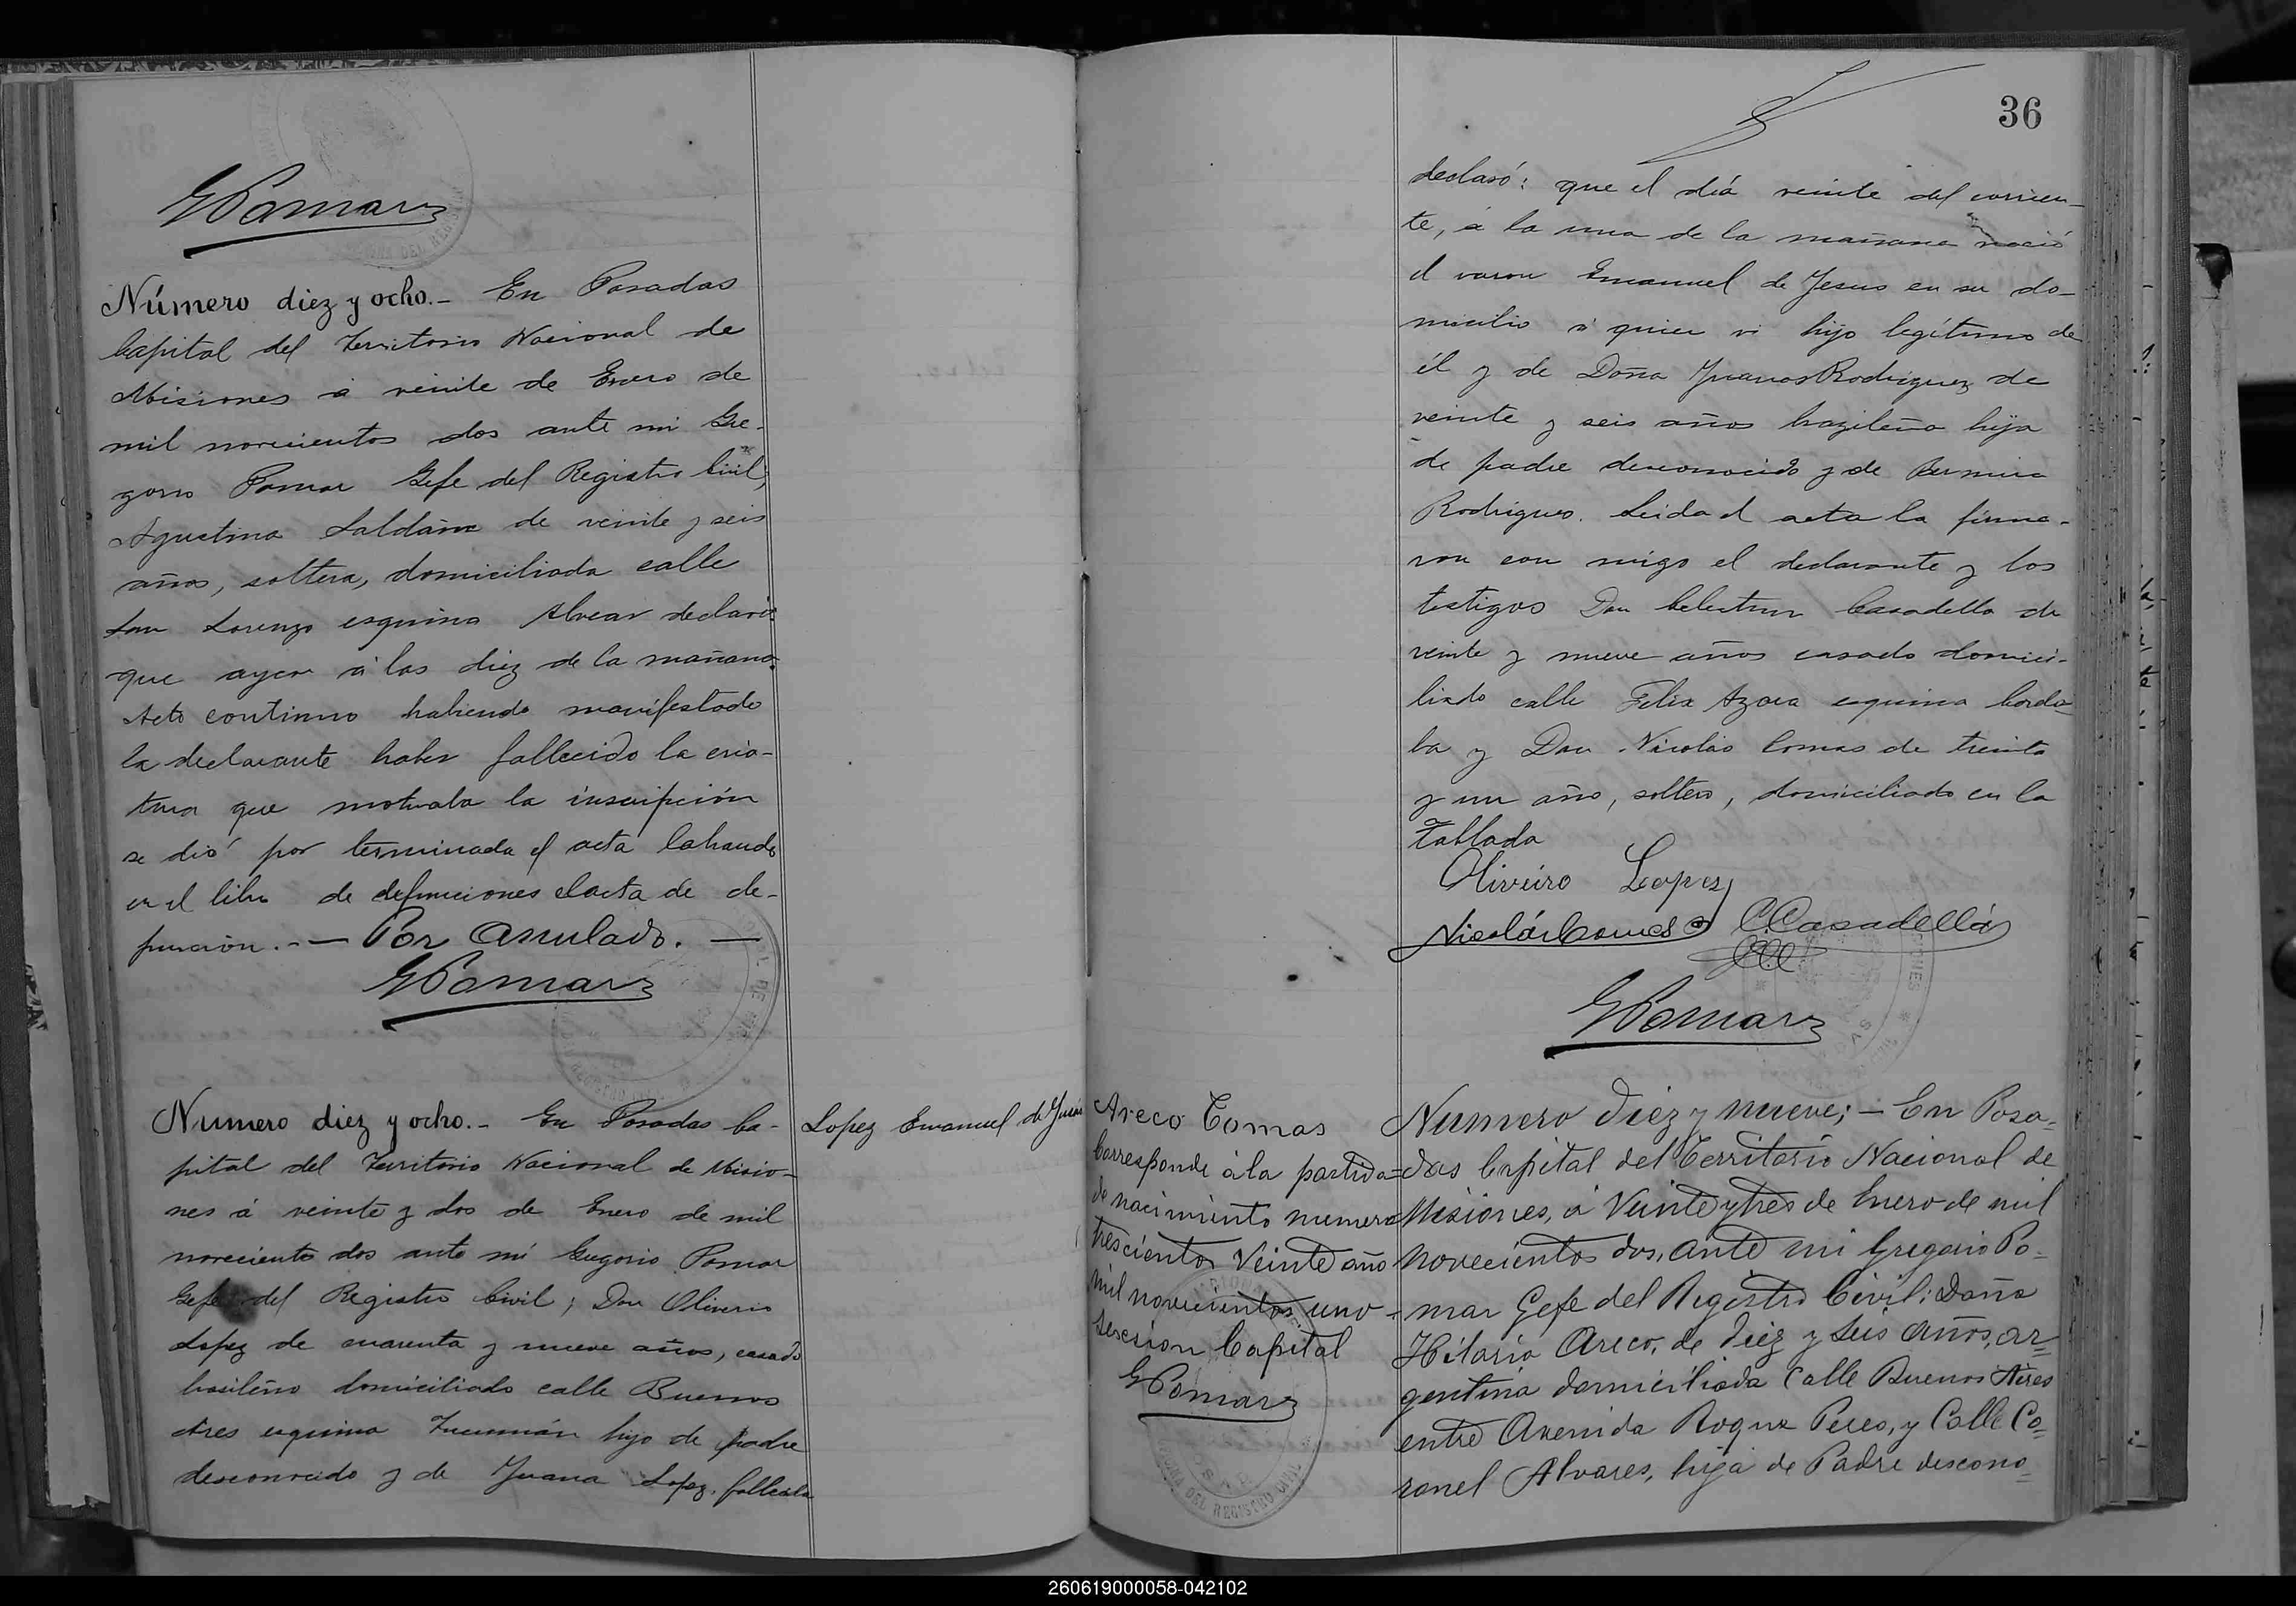 GPomar
Número diez y ocho.- En Posadas
Capital del Territorio Nacional de
Misiones á veinte de Enero de
mil novecientos dos ante mi Gre-
gorio Pomar Gefe del Registro Civil;
Agustina Saldaña de veinte y seis
años, soltera, domiciliada calle
San Lorenzo esquina Alvear declaró:
que ayer á las diez de la mañana.
Acto continuo habiendo manifestado
la declarante haber fallecido la cria-
tura que motivaba la inscripción
se dió por terminada el acta labrando
en el libro de defunciones el acta de de-
función.-— Por Anulado. —
GPomar
Numero diez y ocho.- En Posadas Ca-
pital del Territorio Nacional de Misio-
nes á veinte y dos de Enero de mil
novecientos dos ante mí Gregorio Pomar
Gefe del Registro Civil; Don Oliverio
Lopez de cuarenta y nueve años, casado
brasileño domiciliado calle Buenos
Aires esquina Tucumán hijo de padre
desconocido y de Juana Lopez, fallecida
Lopez Emanuel de Jesús
36
declaró: que el día veinte del corrien-
te, á la una de la mañana nació
el varon Emanuel de Jesus en su do-
micilio á quien vi hijo legítimo de
él y de Doña Juana Rodriguez de
veinte y seis años brazileña hija
de padre desconocido y de
Rodrigues. Leida el acta la firma-
ron con migo el declarante y los
testigos Don Celestino Casadella de
veinte y nueve años casado domici-
liado calle Felix Azara esquina Cordo-
ba y Don Nicolás Comas de treinta
y un año, soltero, domiciliado en la
Tablada
Oliveiro Lopez
Nicolás Comas C.Casadellá
GPomar
Areco Tomas
Corresponde á la partida
de nacimiento numero
trescientos Veinte año
mil novecientos uno-
Seccion Capital
GPomar
Numero diez y nueve;- En Posa-
das Capital del Territorio Nacional de
Misiones, á Veinte y tres de Enero de mil
novecientos dos, ante mi Gregorio Po-
mar Gefe del Registro Civil; Doña
Hilaria Areco, de diez y seis años, ar-
gentina domiciliada Calle Buenos Aires
entre Avenida Roque Peres, y Calle Co-
ronel Alvares, hija de Padre descono-
260619000058-042102